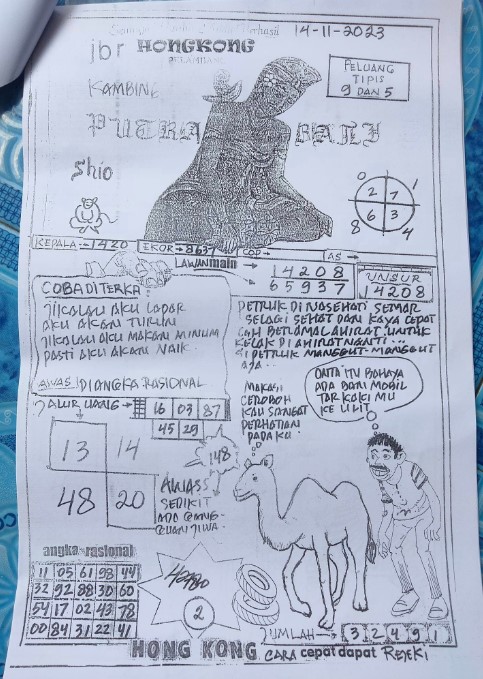 14-11-2023
jbr HONGKONG
KAMBING
PELUANG
TIPIS
9 DAN 5
PUTRA BALI
Shio
0
2 7 1
6 3
8 4
KEPALA → 1420 EKOR → 8637 COP → AS →
LAWAN main → 14208
65937
UNSUR
14208
COBA DI TERKA
JIKALAU AKU LAPAR
AKU AKAN TURUN
JIKALAU AKU MAKAN MINUM
PASTI AKU AKAN NAIK.
AWAS DI ANGKA RASIONAL
PETRUK DI NASEHATI SEMAR
SELAGI SEHAT DAN KAYA CEPAT
LAH BERAMAL AHIRAT UNTUK
KELAK DI AHIRAT NANTI...
SI PETRUK MANGGUT-MANGGUT
AJA..
JALUR UANG → 16 03 87
45 29
13 14
48 20
148
AWASS
SEDIKIT
ADA GANG-
GUAN JIWA.
MAKASI
CEROBOH
KAU SANGAT
PERHATIAN
PADA KU.
ONTA ITU BAHAYA
ADA BAN MOBIL
TAR KAKI MU
angka rasional
11 05 61 98 44
32 92 88 30 60
54 17 02 43 78
00 84 31 22 41
2
JUMLAH → 3 2 4 9 1
HONG KONG CARA cepat dapat REJEKI